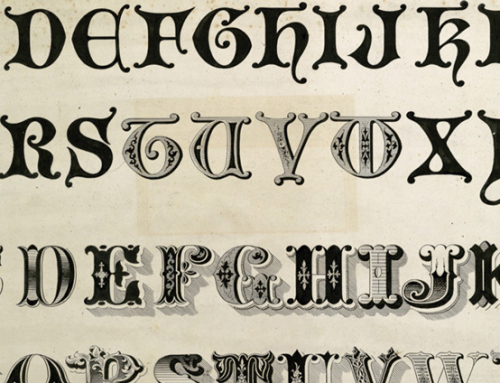 DEFGHIJK
RSTUVWXY
DEFGHIJK
QRSTUVW